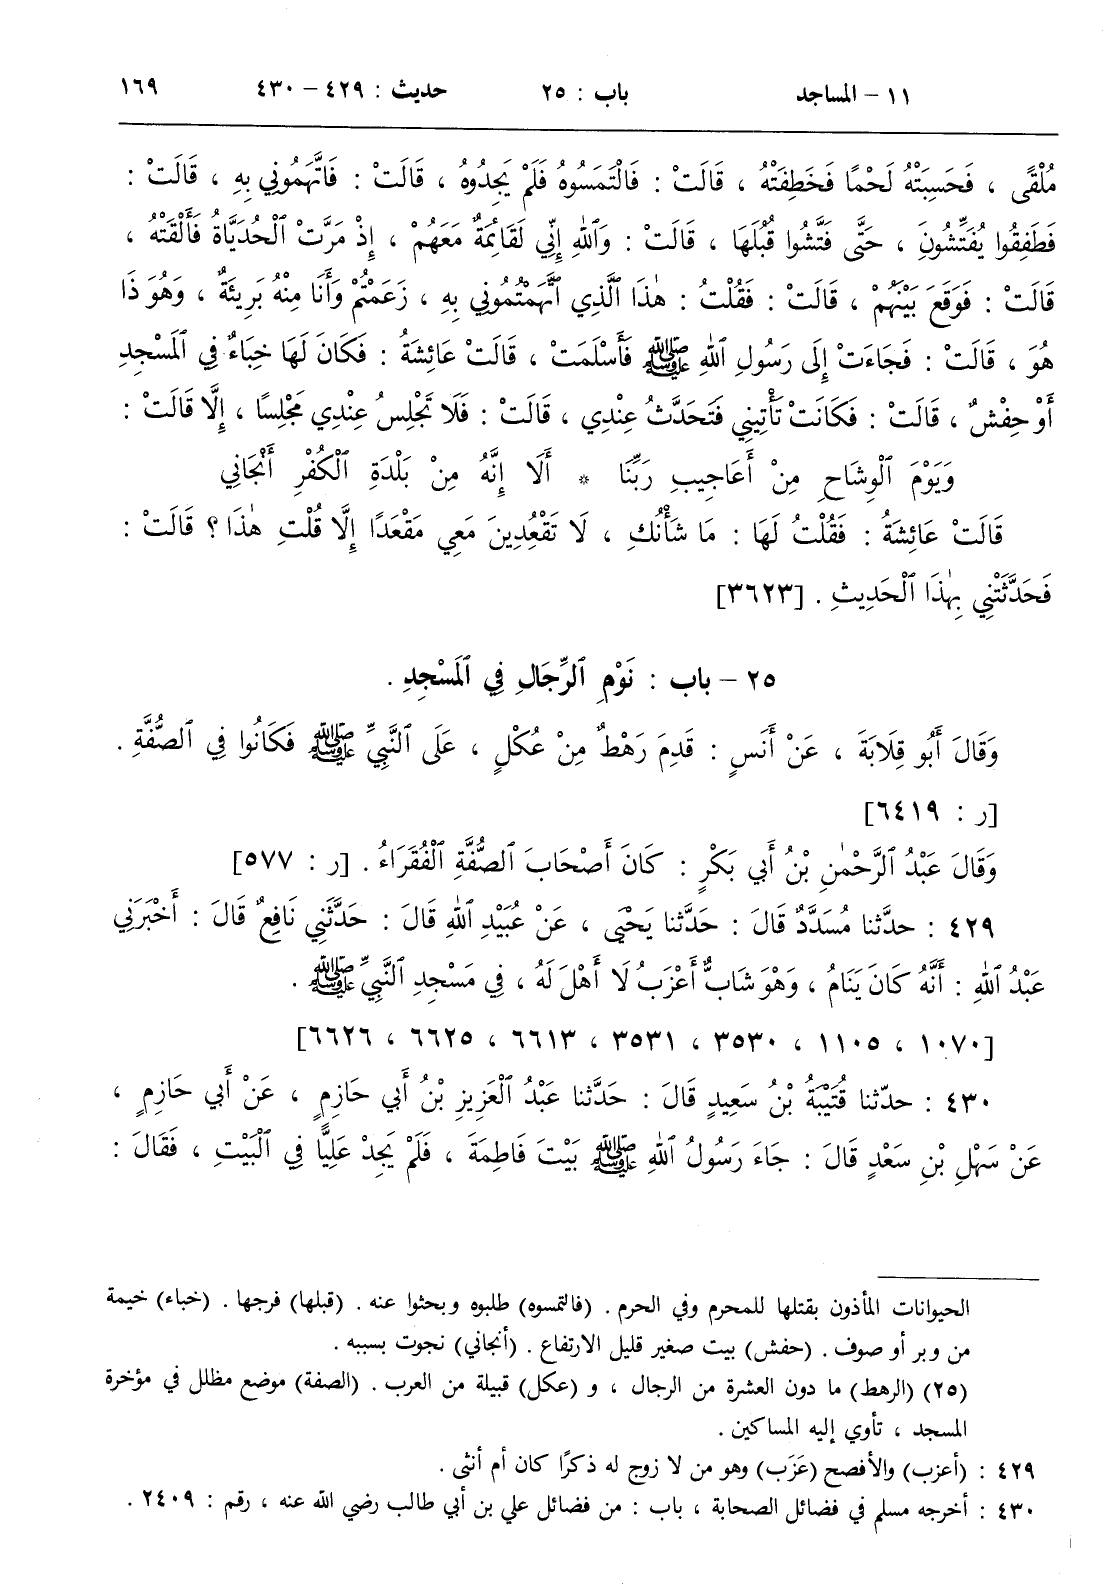 ١١ – المساجد باب : ٢٥ حديث : ٤٢٩ – ٤٣٠ ١٦٩
مُلْقًى ، فَحَسِبَتْهُ لَحْمًا فَخَطِفَتْهُ ، قَالَتْ : فَالْتَمَسُوهُ فَلَمْ يَجِدُوهُ ، قَالَتْ : فَاتَّهَمُونِي بِهِ ، قَالَتْ :
فَطَفِقُوا يُفَتِّشُونَ ، حَتَّى فَتَّشُوا قُبُلَهَا ، قَالَتْ : وَٱللهِ إِنِّي لَقَائِمَةٌ مَعَهُمْ ، إِذْ مَرَّتْ ٱلْحُدَيَّاةُ فَأَلْقَتْهُ ،
قَالَتْ : فَوَقَعَ بَيْنَهُمْ ، قَالَتْ : فَقُلْتُ : هٰذَا ٱلَّذِي ٱتَّهَمْتُمُونِي بِهِ ، زَعَمْتُمْ وَأَنَا مِنْهُ بَرِيئَةٌ ، وَهُوَ ذَا
هُوَ ، قَالَتْ : فَجَاءَتْ إِلَى رَسُولِ ٱللهِ ﷺ فَأَسْلَمَتْ ، قَالَتْ عَائِشَةُ : فَكَانَ لَهَا خِبَاءٌ فِي ٱلْمَسْجِدِ
أَوْ حِفْشٌ ، قَالَتْ : فَكَانَتْ تَأْتِينِي فَتَحَدَّثُ عِنْدِي ، قَالَتْ : فَلَا تَجْلِسُ عِنْدِي مَجْلِسًا ، إِلَّا قَالَتْ :
وَيَوْمَ ٱلْوِشَاحِ مِنْ أَعَاجِيبِ رَبِّنَا * أَلَا إِنَّهُ مِنْ بَلْدَةِ ٱلْكُفْرِ أَنْجَانِي
قَالَتْ عَائِشَةُ : فَقُلْتُ لَهَا : مَا شَأْنُكِ ، لَا تَقْعُدِينَ مَعِي مَقْعَدًا إِلَّا قُلْتِ هٰذَا ؟ قَالَتْ :
فَحَدَّثَتْنِي بِهٰذَا ٱلْحَدِيثِ . [٣٦٢٣]
٢٥ – باب : نَوْمِ ٱلرِّجَالِ فِي ٱلْمَسْجِدِ .
وَقَالَ أَبُو قِلَابَةَ ، عَنْ أَنَسٍ : قَدِمَ رَهْطٌ مِنْ عُكْلٍ ، عَلَى ٱلنَّبِيِّ ﷺ فَكَانُوا فِي ٱلصُّفَّةِ .
[ر : ٦٤١٩]
وَقَالَ عَبْدُ ٱلرَّحْمٰنِ بْنُ أَبِي بَكْرٍ : كَانَ أَصْحَابَ ٱلصُّفَّةِ ٱلْفُقَرَاءُ . [ر : ٥٧٧]
٤٢٩ : حدّثنا مُسَدَّدٌ قَالَ : حَدَّثنا يَحْيَى ، عَنْ عُبَيْدِ ٱللهِ قَالَ : حَدَّثَنِي نَافِعٌ قَالَ : أَخْبَرَنِي
عَبْدُ ٱللهِ : أَنَّهُ كَانَ يَنَامُ ، وَهْوَ شَابٌّ أَعْزَبُ لَا أَهْلَ لَهُ ، فِي مَسْجِدِ ٱلنَّبِيِّ ﷺ .
[١٠٧٠ ، ١١٠٥ ، ٣٥٣٠ ، ٣٥٣١ ، ٦٦١٣ ، ٦٦٢٥ ، ٦٦٢٦]
٤٣٠ : حدّثنا قُتَيْبَةُ بْنُ سَعِيدٍ قَالَ : حَدَّثنا عَبْدُ ٱلْعَزِيزِ بْنُ أَبِي حَازِمٍ ، عَنْ أَبِي حَازِمٍ ،
عَنْ سَهْلِ بْنِ سَعْدٍ قَالَ : جَاءَ رَسُولُ ٱللهِ ﷺ بَيْتَ فَاطِمَةَ ، فَلَمْ يَجِدْ عَلِيًّا فِي ٱلْبَيْتِ ، فَقَالَ :
الحيوانات المأذون بقتلها للمحرم وفي الحرم . (فالتمسوه) طلبوه وبحثوا عنه . (قبلها) فرجها . (خباء) خيمة
من وبر أو صوف . (حفش) بيت صغير قليل الارتفاع . (أنجاني) نجوت بسببه .
(٢٥) (الرهط) ما دون العشرة من الرجال ، و (عكل) قبيلة من العرب . (الصفة) موضع مظلل في مؤخرة
المسجد ، تأوي إليه المساكين .
٤٢٩ : (أعزب) والأفصح (عَزَب) وهو من لا زوج له ذكرًا كان أم أنثى .
٤٣٠ : أخرجه مسلم في فضائل الصحابة ، باب : من فضائل علي بن أبي طالب رضي الله عنه ، رقم : ٢٤٠٩ .